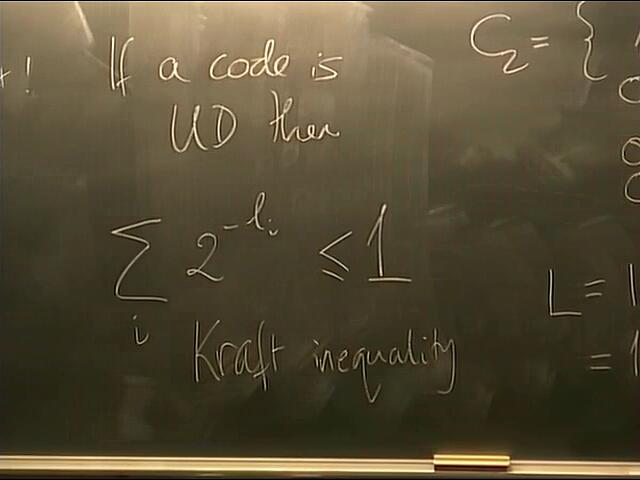 If a code is
UD then
∑ 2^{-l_i} ≤ 1
i
Kraft inequality
C₂ = {
L =
=